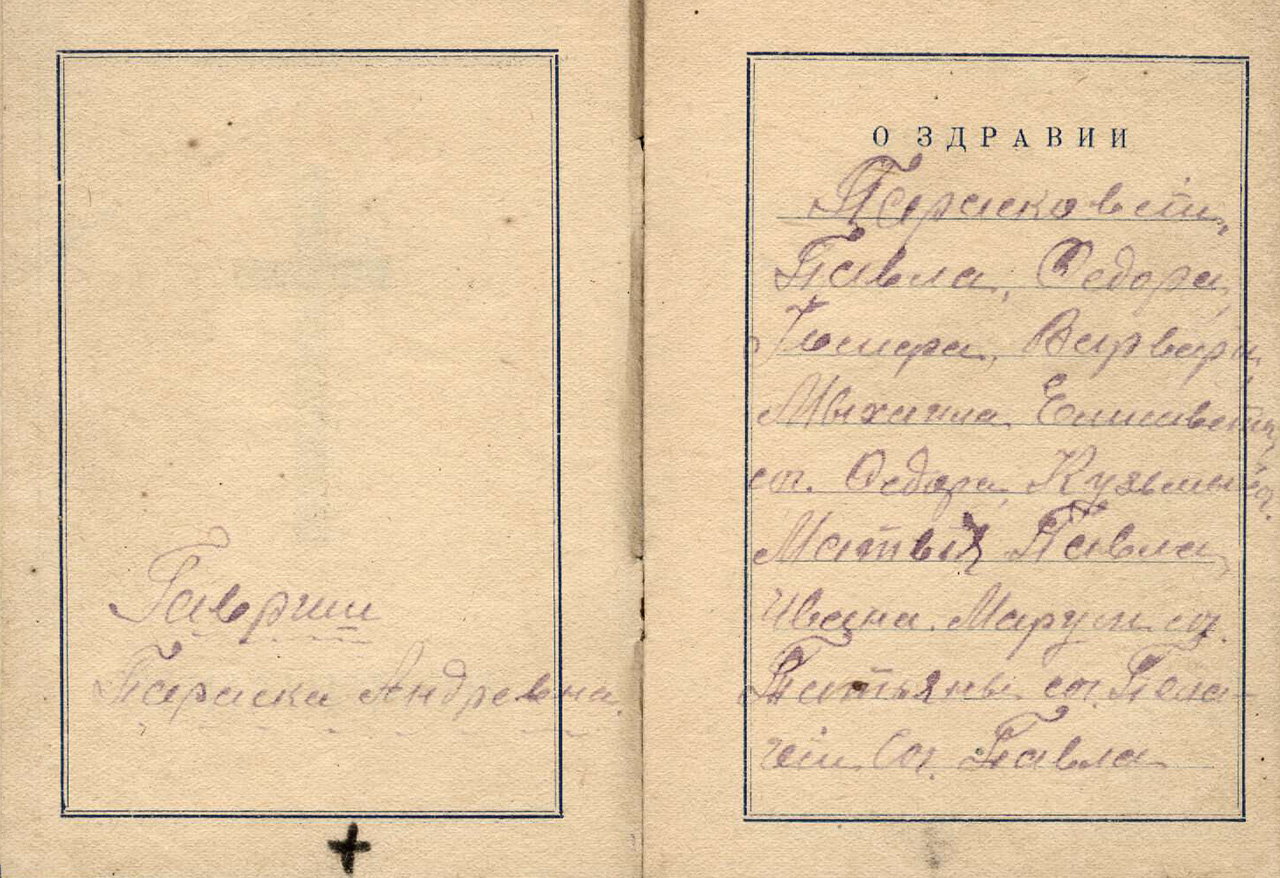 Гавриш
Параска Андревна.
О ЗДРАВИИ
Парасковіи,
Павла, Федора,
Варвары,
Мыхаила, Елисаветы,
сг. Федора, Кузьмы сг.
Матвія Павла,
Ивана, Маруси сг.
Татьяны сг. Пела-
геи, сг. Павла